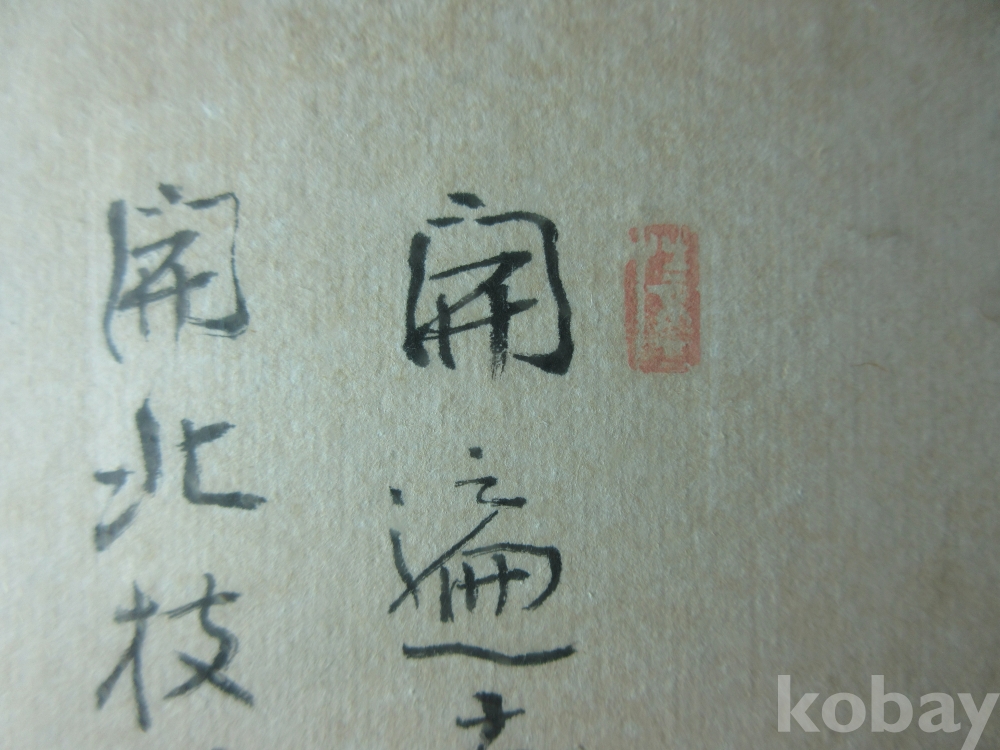 開遍
開北枝
kobay